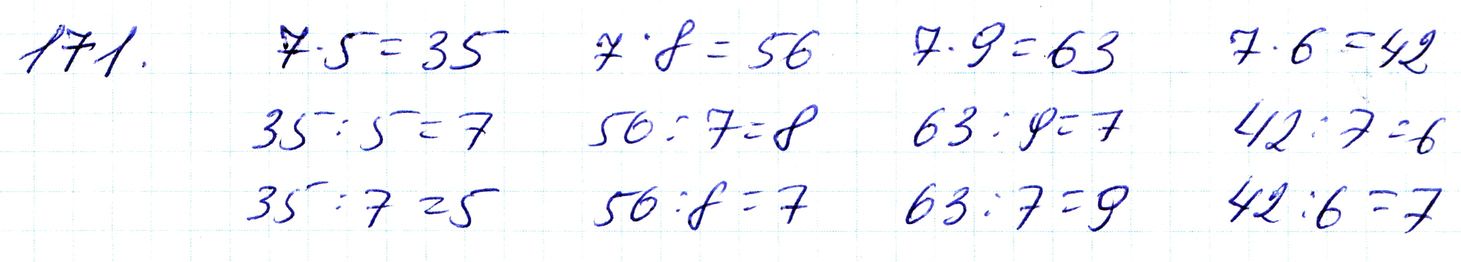 171. 7·5=35 7·8=56 7·9=63 7·6=42
35:5=7 56:7=8 63:9=7 42:7=6
35:7=5 56:8=7 63:7=9 42:6=7